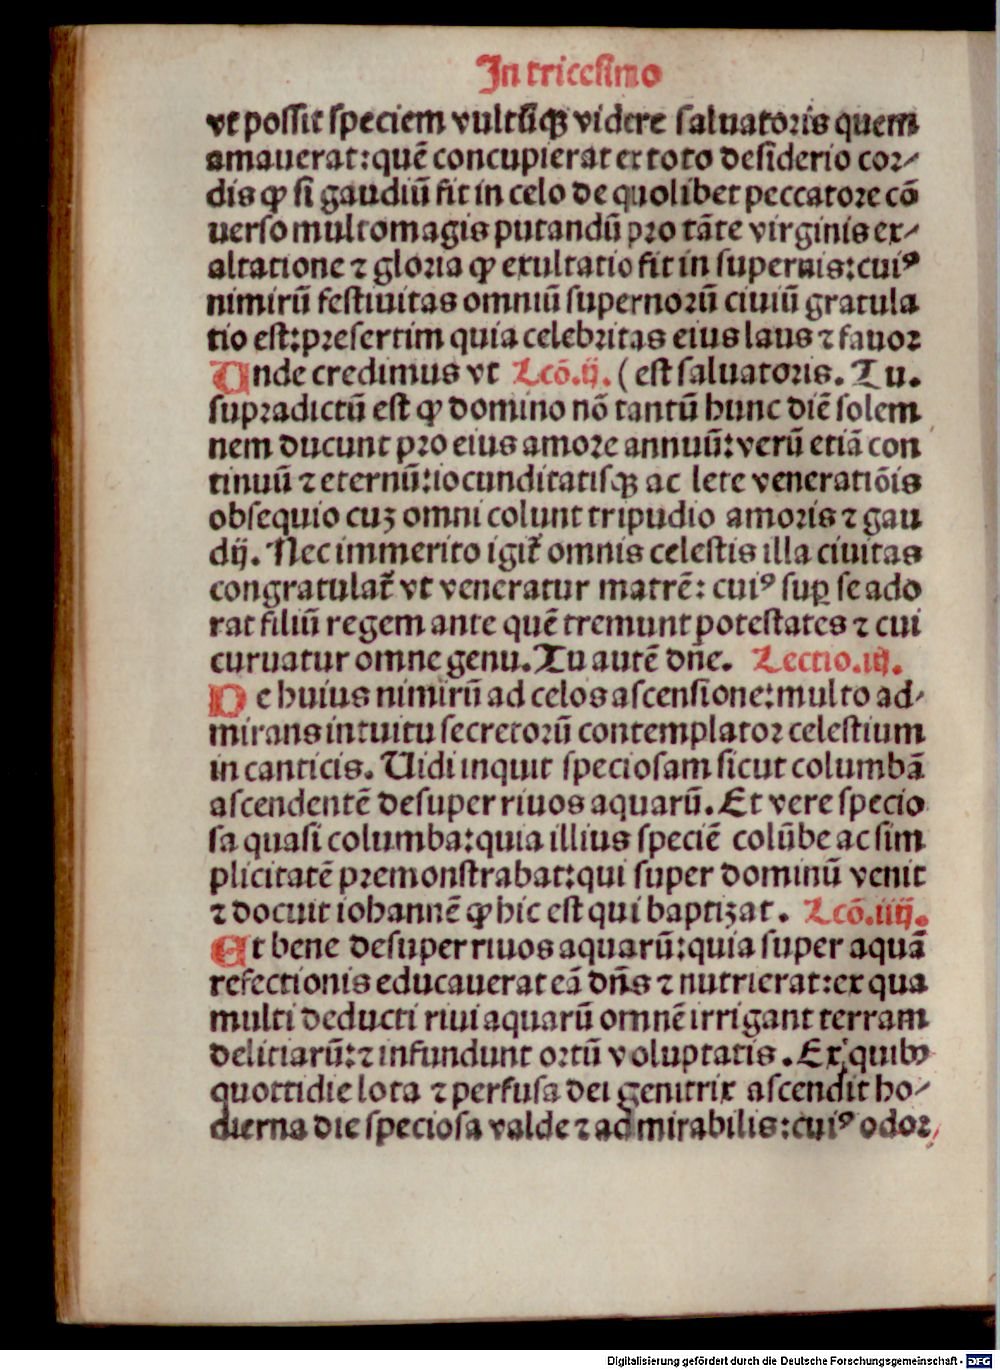 In tricesimo
vt possit speciem vultūsqꝫ videre saluatoris quem
amauerat:quē concupierat ex toto desiderio cor⸗
dis ꝙ si gaudiū fit in celo de quolibet peccatore cō
uerso multomagis putandū pro tāte virginis ex⸗
altatione ⁊ gloria ꝙ exultatio fit in supernis:cuiꝰ
nimirū festiuitas omniū supernorū ciuiū gratula
tio est:presertim quia celebritas eius laus ⁊ fauor
Unde credimus vt Lcō.ij. ( est saluatoris. Tu.
supradictū est ꝙ domino nō tantū hunc diē solem
nem ducunt pro eius amore annuū:verū etiā con
tinuū ⁊ eternū:iocunditatisqꝫ ac lete veneratiōis
obsequio cuz omni colunt tripudio amoris ⁊ gau
dij. Nec immerito igit̄ omnis celestis illa ciuitas
congratulat̄ vt veneratur matrē: cuiꝰ suꝑ se ado
rat filiū regem ante quē tremunt potestates ⁊ cui
curuatur omne genu. Tu autē dn̄e. Lectio.iij.
De huius nimirū ad celos ascensione:multo ad⸗
mirans intuitu secretorū contemplator celestium
in canticis. Uidi inquit speciosam sicut columbā
ascendentē desuper riuos aquarū. Et vere specio
sa quasi columba:quia illius speciē colūbe ac sim
plicitatē premonstrabat:qui super dominū venit
⁊ docuit iohannē ꝙ hic est qui baptizat. Lcō.iiij.
Et bene desuper riuos aquarū:quia super aquā
refectionis educauerat eā dn̄s ⁊ nutrierat:ex qua
multi deducti riui aquarū omnē irrigant terram
delitiarū:⁊ infundunt ortū voluptatis. Ex quibꝰ
quottidie lota ⁊ perfusa dei genitrix ascendit ho⸗
dierna die speciosa valde ⁊ admirabilis:cuiꝰ odor
Digitalisierung gefördert durch die Deutsche Forschungsgemeinschaft - DFG